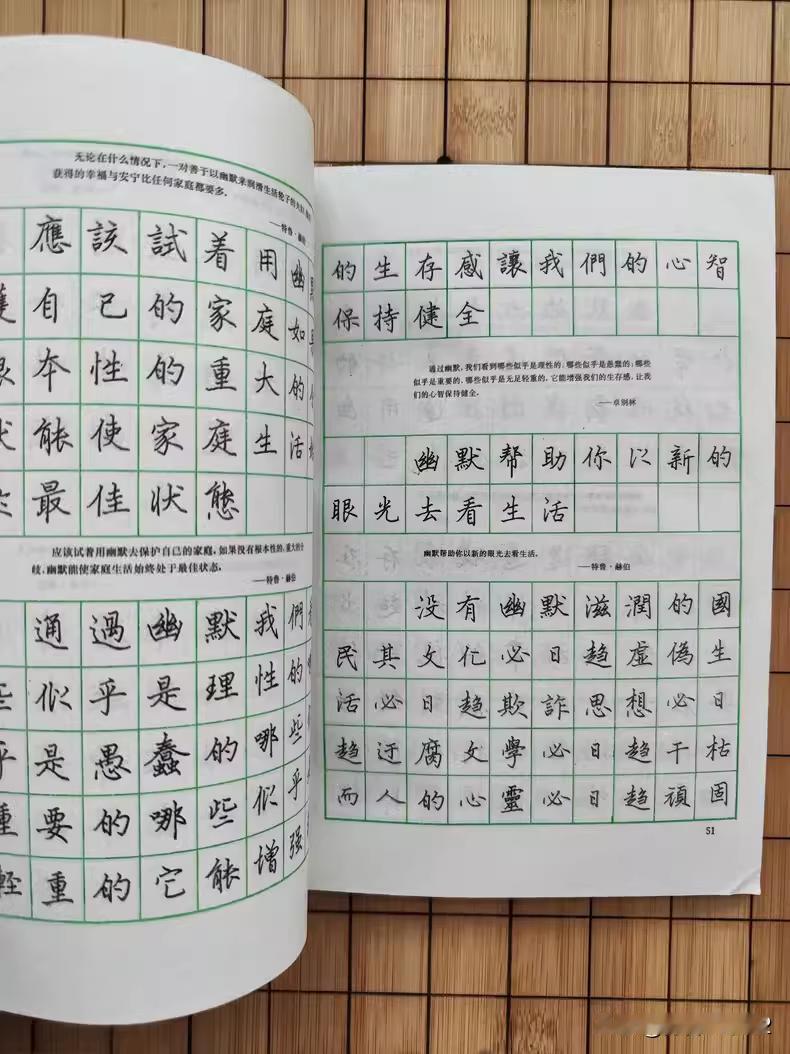 无论在什么情况下,一对善于以幽默来润滑生活轮子的夫
获得的幸福与安宁比任何家庭都要多。
——特鲁·赫
應該試着用幽
自己的家庭如
本性的重大的
能使家庭生活
最佳狀態
应该试着用幽默去保护自己的家庭,如果没有根本性的、重大的分
歧,幽默能使家庭生活始终处于最佳状态。
——特鲁·赫伯
通過幽默我們
些似乎是理性的
乎是愚蠢的哪些
重要的哪些似乎
輕重的它能增强
的生存感讓我們的心智
保持健全
通过幽默,我们看到哪些似乎是理性的,哪些似乎是愚蠢的;哪些
似乎是重要的,哪些似乎是无足轻重的。它能增强我们的生存感,让我
们的心智保持健全。
——卓别林
幽默帮助你以新的
眼光去看生活
幽默帮助你以新的眼光去看生活。
——特鲁·赫伯
没有幽默滋潤的國
民其文化必日趋虚偽生
活必日趋欺詐思想必日
趋迂腐文學必日趋干枯
而人的心靈必日趋頑固
51